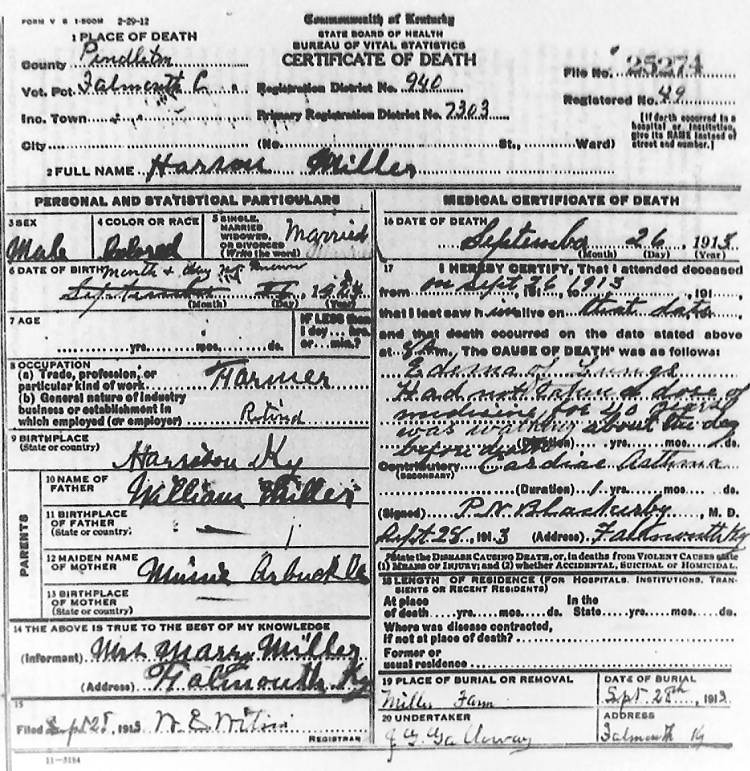 FORM V S 1-500M 2-29-12
Commonwealth of Kentucky
STATE BOARD OF HEALTH
BUREAU OF VITAL STATISTICS
CERTIFICATE OF DEATH
1 PLACE OF DEATH
County Pendleton
Vot. Pct Falmouth C.
Inc. Town
City (No. St., Ward)
Registration District No. 940
Primary Registration District No. 7303
File No. 25274
Registered No. 49
[If death occurred in a
hospital or institution,
give its NAME instead of
street and number.]
2 FULL NAME Harrson Miller
PERSONAL AND STATISTICAL PARTICULARS
3 SEX
Male
4 COLOR OR RACE
Colored
5 SINGLE,
MARRIED
WIDOWED,
OR DIVORCED
(Write the word)
Married
6 DATE OF BIRTH Month & day not known
September
(Month) (Day) (Year)
7 AGE
yrs. mos. ds.
IF LESS than
1 day hrs.
or min.?
8 OCCUPATION
(a) Trade, profession, or
particular kind of work Farmer
(b) General nature of industry
business or establishment in
which employed (or employer) Retired
9 BIRTHPLACE
(State or country)
Harrison Ky
PARENTS
10 NAME OF
FATHER William Miller
11 BIRTHPLACE
OF FATHER
(State or country)
12 MAIDEN NAME
OF MOTHER Minnie Arbuckle
13 BIRTHPLACE
OF MOTHER
(State or country)
14 THE ABOVE IS TRUE TO THE BEST OF MY KNOWLEDGE
(Informant) Mrs Mary Miller
(Address) Falmouth Ky
15
Filed Sept 28, 1913 W. E.
REGISTRAR
11-3184
MEDICAL CERTIFICATE OF DEATH
16 DATE OF DEATH
September 26, 1913
(Month) (Day) (Year)
17 I HEREBY CERTIFY, That I attended deceased
from on Sept 26 1913, 191, to, 191,
that I last saw him alive on that date,
and that death occurred on the date stated above
at 8 am. The CAUSE OF DEATH* was as follows:
Edema of Lungs
Had not taken a dose of
medicine for 40 years
was working about the day
before death (Duration) yrs. mos. ds.
Contributory Cardiac Asthma
(SECONDARY)
(Duration) 1 yrs. mos. ds.
(Signed) P. N. Blackerby, M. D.
Sept. 28, 1913 (Address) Falmouth Ky
*State the DISEASE CAUSING DEATH, or, in deaths from VIOLENT CAUSES state
(1) MEANS OF INJURY; and (2) whether ACCIDENTAL, SUICIDAL OR HOMICIDAL.
18 LENGTH OF RESIDENCE (FOR HOSPITALS, INSTITUTIONS, TRAN-
SIENTS OR RECENT RESIDENTS)
At place In the
of death yrs. mos. ds. State yrs. mos. ds.
Where was disease contracted,
if not at place of death?
Former or
usual residence
19 PLACE OF BURIAL OR REMOVAL
Miller Farm
DATE OF BURIAL
Sept 28th, 1913
20 UNDERTAKER
J G Galloway
ADDRESS
Falmouth Ky